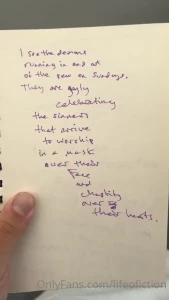 I see the demons
running in and out
of the pew on Sundays.
They are gayly
celebrating
the sinners
that arrive
to worship
in a mask
over their
Face
and
chastity
over
their hearts.
OnlyFans.com/lifeofiction